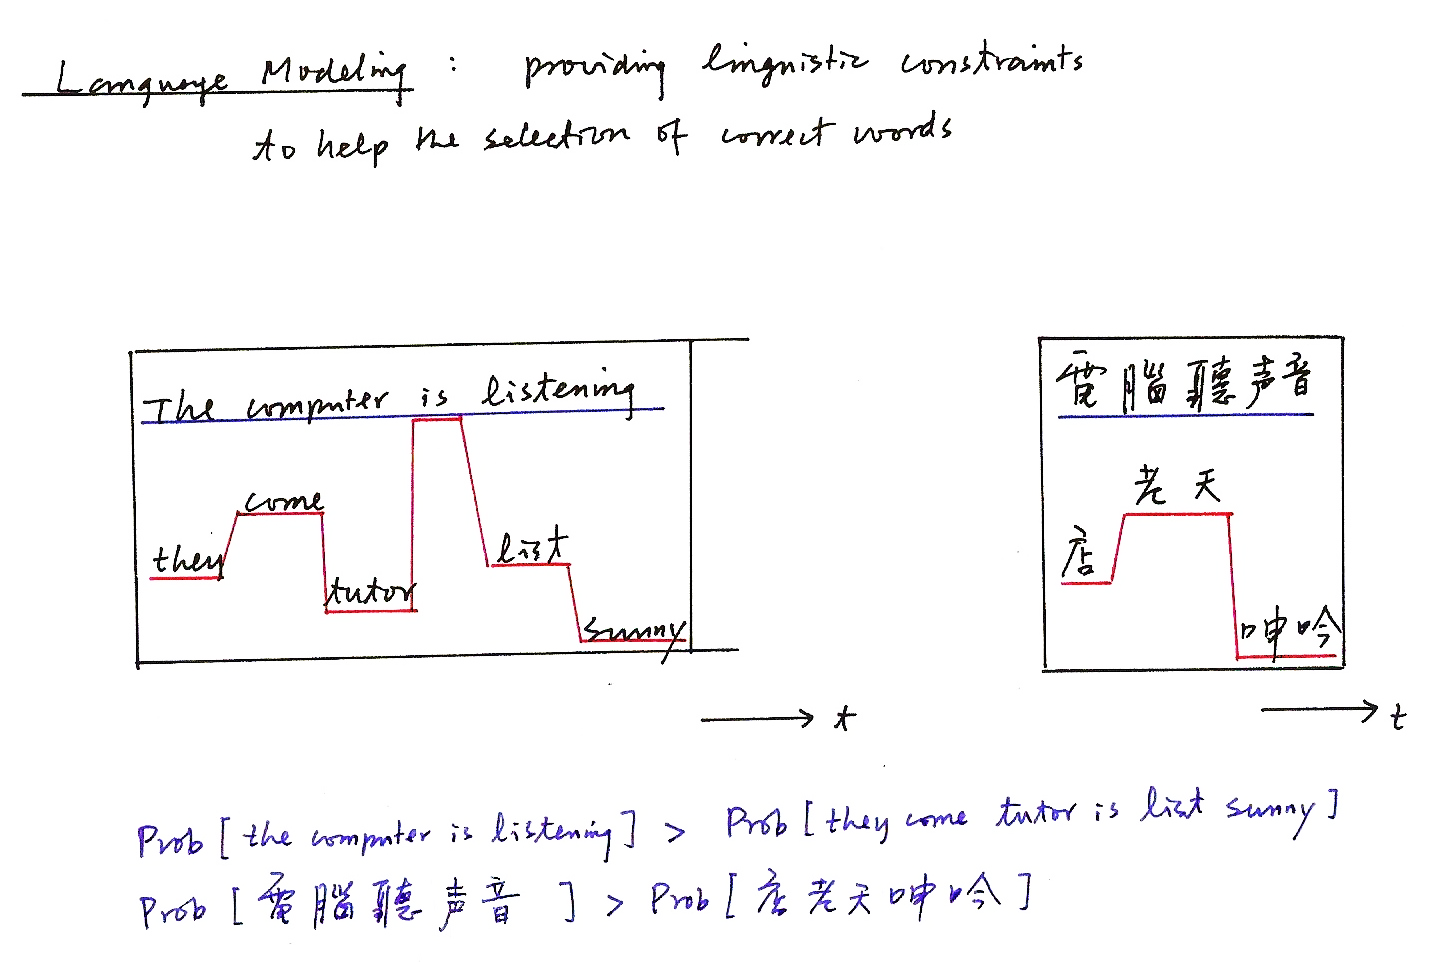 Language Modeling : providing linguistic constraints
to help the selection of correct words
The computer is listening
they come tutor list sunny
t
電腦聽声音
老天
店
呻吟
t
Prob [the computer is listening] > Prob [they come tutor is list sunny]
Prob [電腦聽声音] > Prob [店老天呻吟]